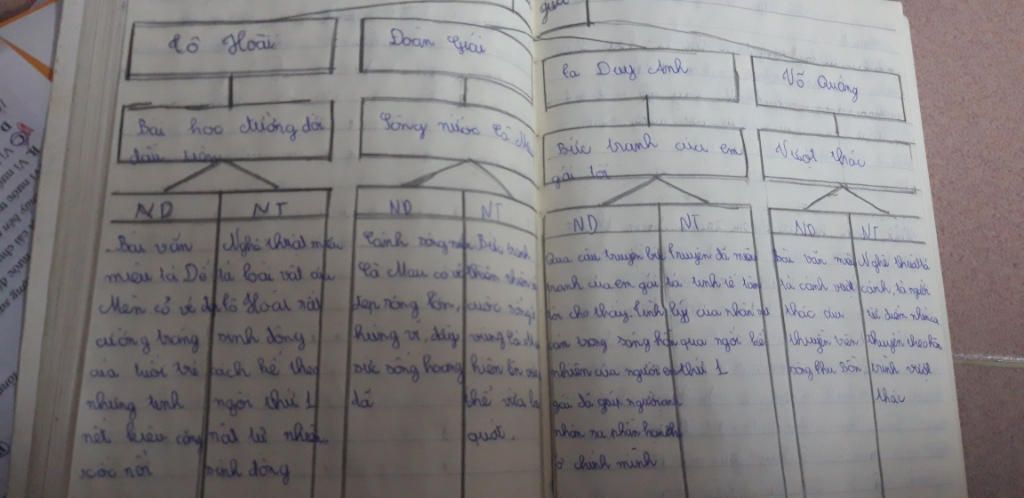 qua
Tô Hoài
Đoàn Giỏi
Tạ Duy Anh
Võ Quảng
Bài học đường đời
đầu tiên
Sông nước Cà Mau
Bức tranh của em
gái tôi
Vượt thác
ND
NT
Bài văn
miêu tả Dế
Mèn có vẻ đẹp
cường tráng
của tuổi trẻ
nhưng tính
nết kiêu căng
xốc nổi
Nghệ thuật miêu
tả loài vật của
Tô Hoài rất
sinh động
cách kể theo
ngôi thứ 1
rất tự nhiên
sinh động
ND
NT
Cảnh sông nước
Cà Mau có vẻ
đẹp rộng lớn,
hùng vĩ, đầy
sức sống hoang
dã
Bức tranh
thiên nhiên
cuộc sống
vùng
hiện lên vừa
thể vừa
quát.
ND
NT
Qua câu truyện bức
tranh của em gái
tôi cho thấy. Tình
cảm trong sáng hồn
nhiên của người em
gái đã giúp người anh
nhận ra phần hạn chế
ở chính mình
Truyện đã miêu
tả tinh tế tâm
lý của nhân vật
qua ngôi kể
thứ 1
ND
NT
Bài văn miêu
tả cảnh vượt
thác của
thuyền trên
sông Thu Bồn
Nghệ thuật tả
cảnh, tả người
từ điểm nhìn
thuyền theo hành
trình vượt
thác